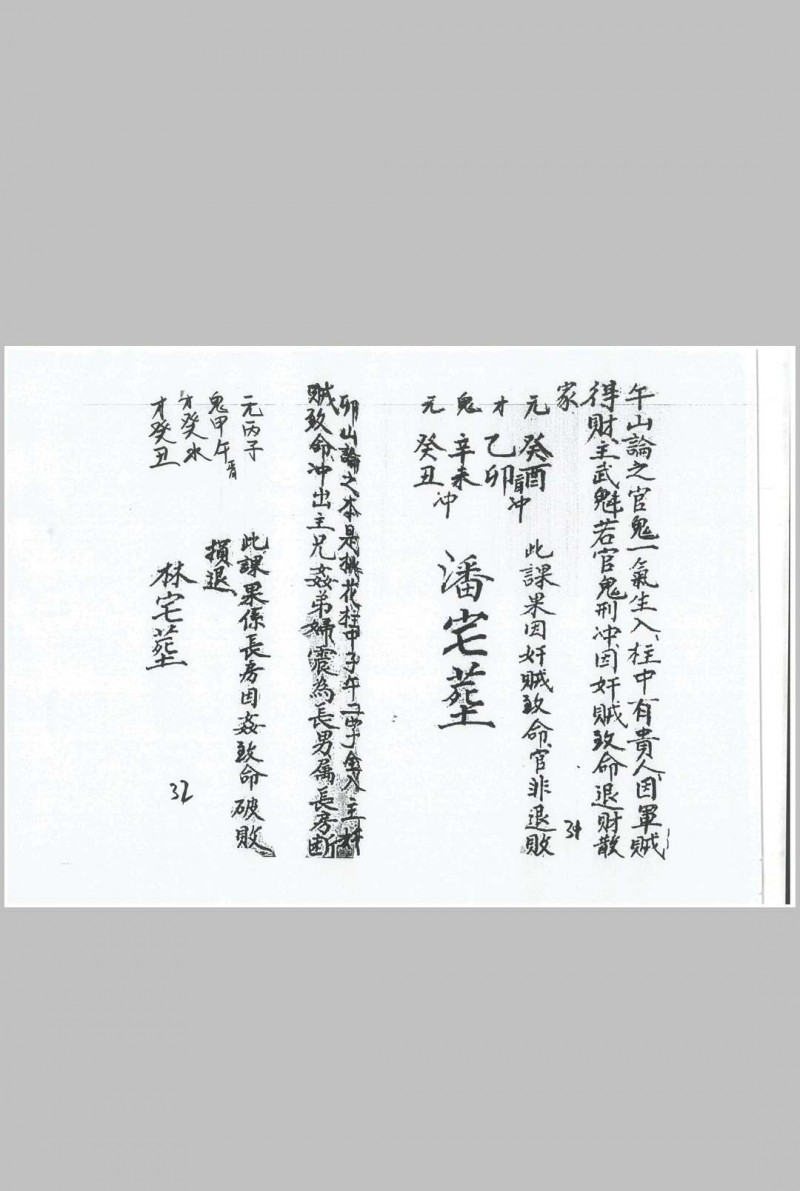 午山論之官鬼一氣生入、柱中有貴人、因軍賊
得財主武魁若官鬼刑冲、因奸賊致命退財散
家
元 癸酉冲
才 乙卯
鬼 辛未
元 癸丑冲
此課果因奸賊致命、官非退敗
34
潘宅塟
卯山論之本是桃花柱甲子午二字全入主奸
賊致命、冲出主兄姦弟婦震為長男属長房断
元丙子
鬼甲午
才癸水
才癸丑
此課果係長房因姦致命破敗
損退
林宅塟
32